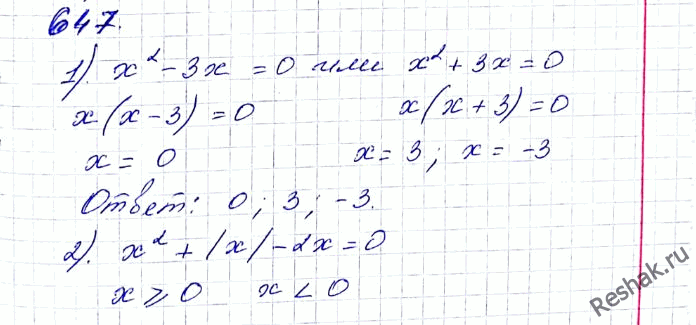 647.
1). x² - 3x = 0 или x² + 3x = 0
x(x - 3) = 0 x(x + 3) = 0
x = 0 x = 3; x = -3
Ответ: 0; 3; -3.
2). x² + |x| - 2x = 0
x ⩾ 0 x < 0
Reshak.ru